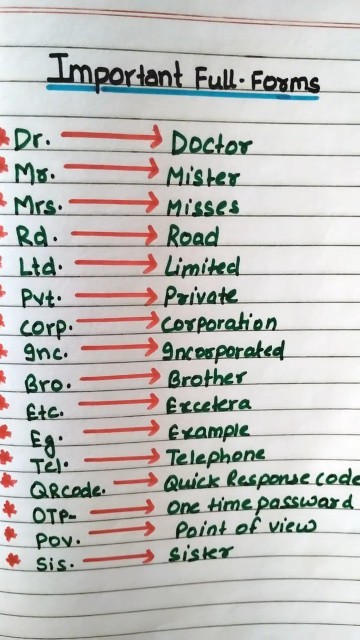 Important Full-Forms
* Dr. → Doctor
* Mr. → Mister
* Mrs. → Misses
* Rd. → Road
* Ltd. → Limited
* Pvt. → Private
* Corp. → Corporation
* Inc. → Incorporated
* Bro. → Brother
* Etc. → Excetera
* Eg. → Example
* Tel. → Telephone
* QRcode. → Quick Response code
* OTP- → One time passward
* POV. → Point of view
* Sis. → Sister